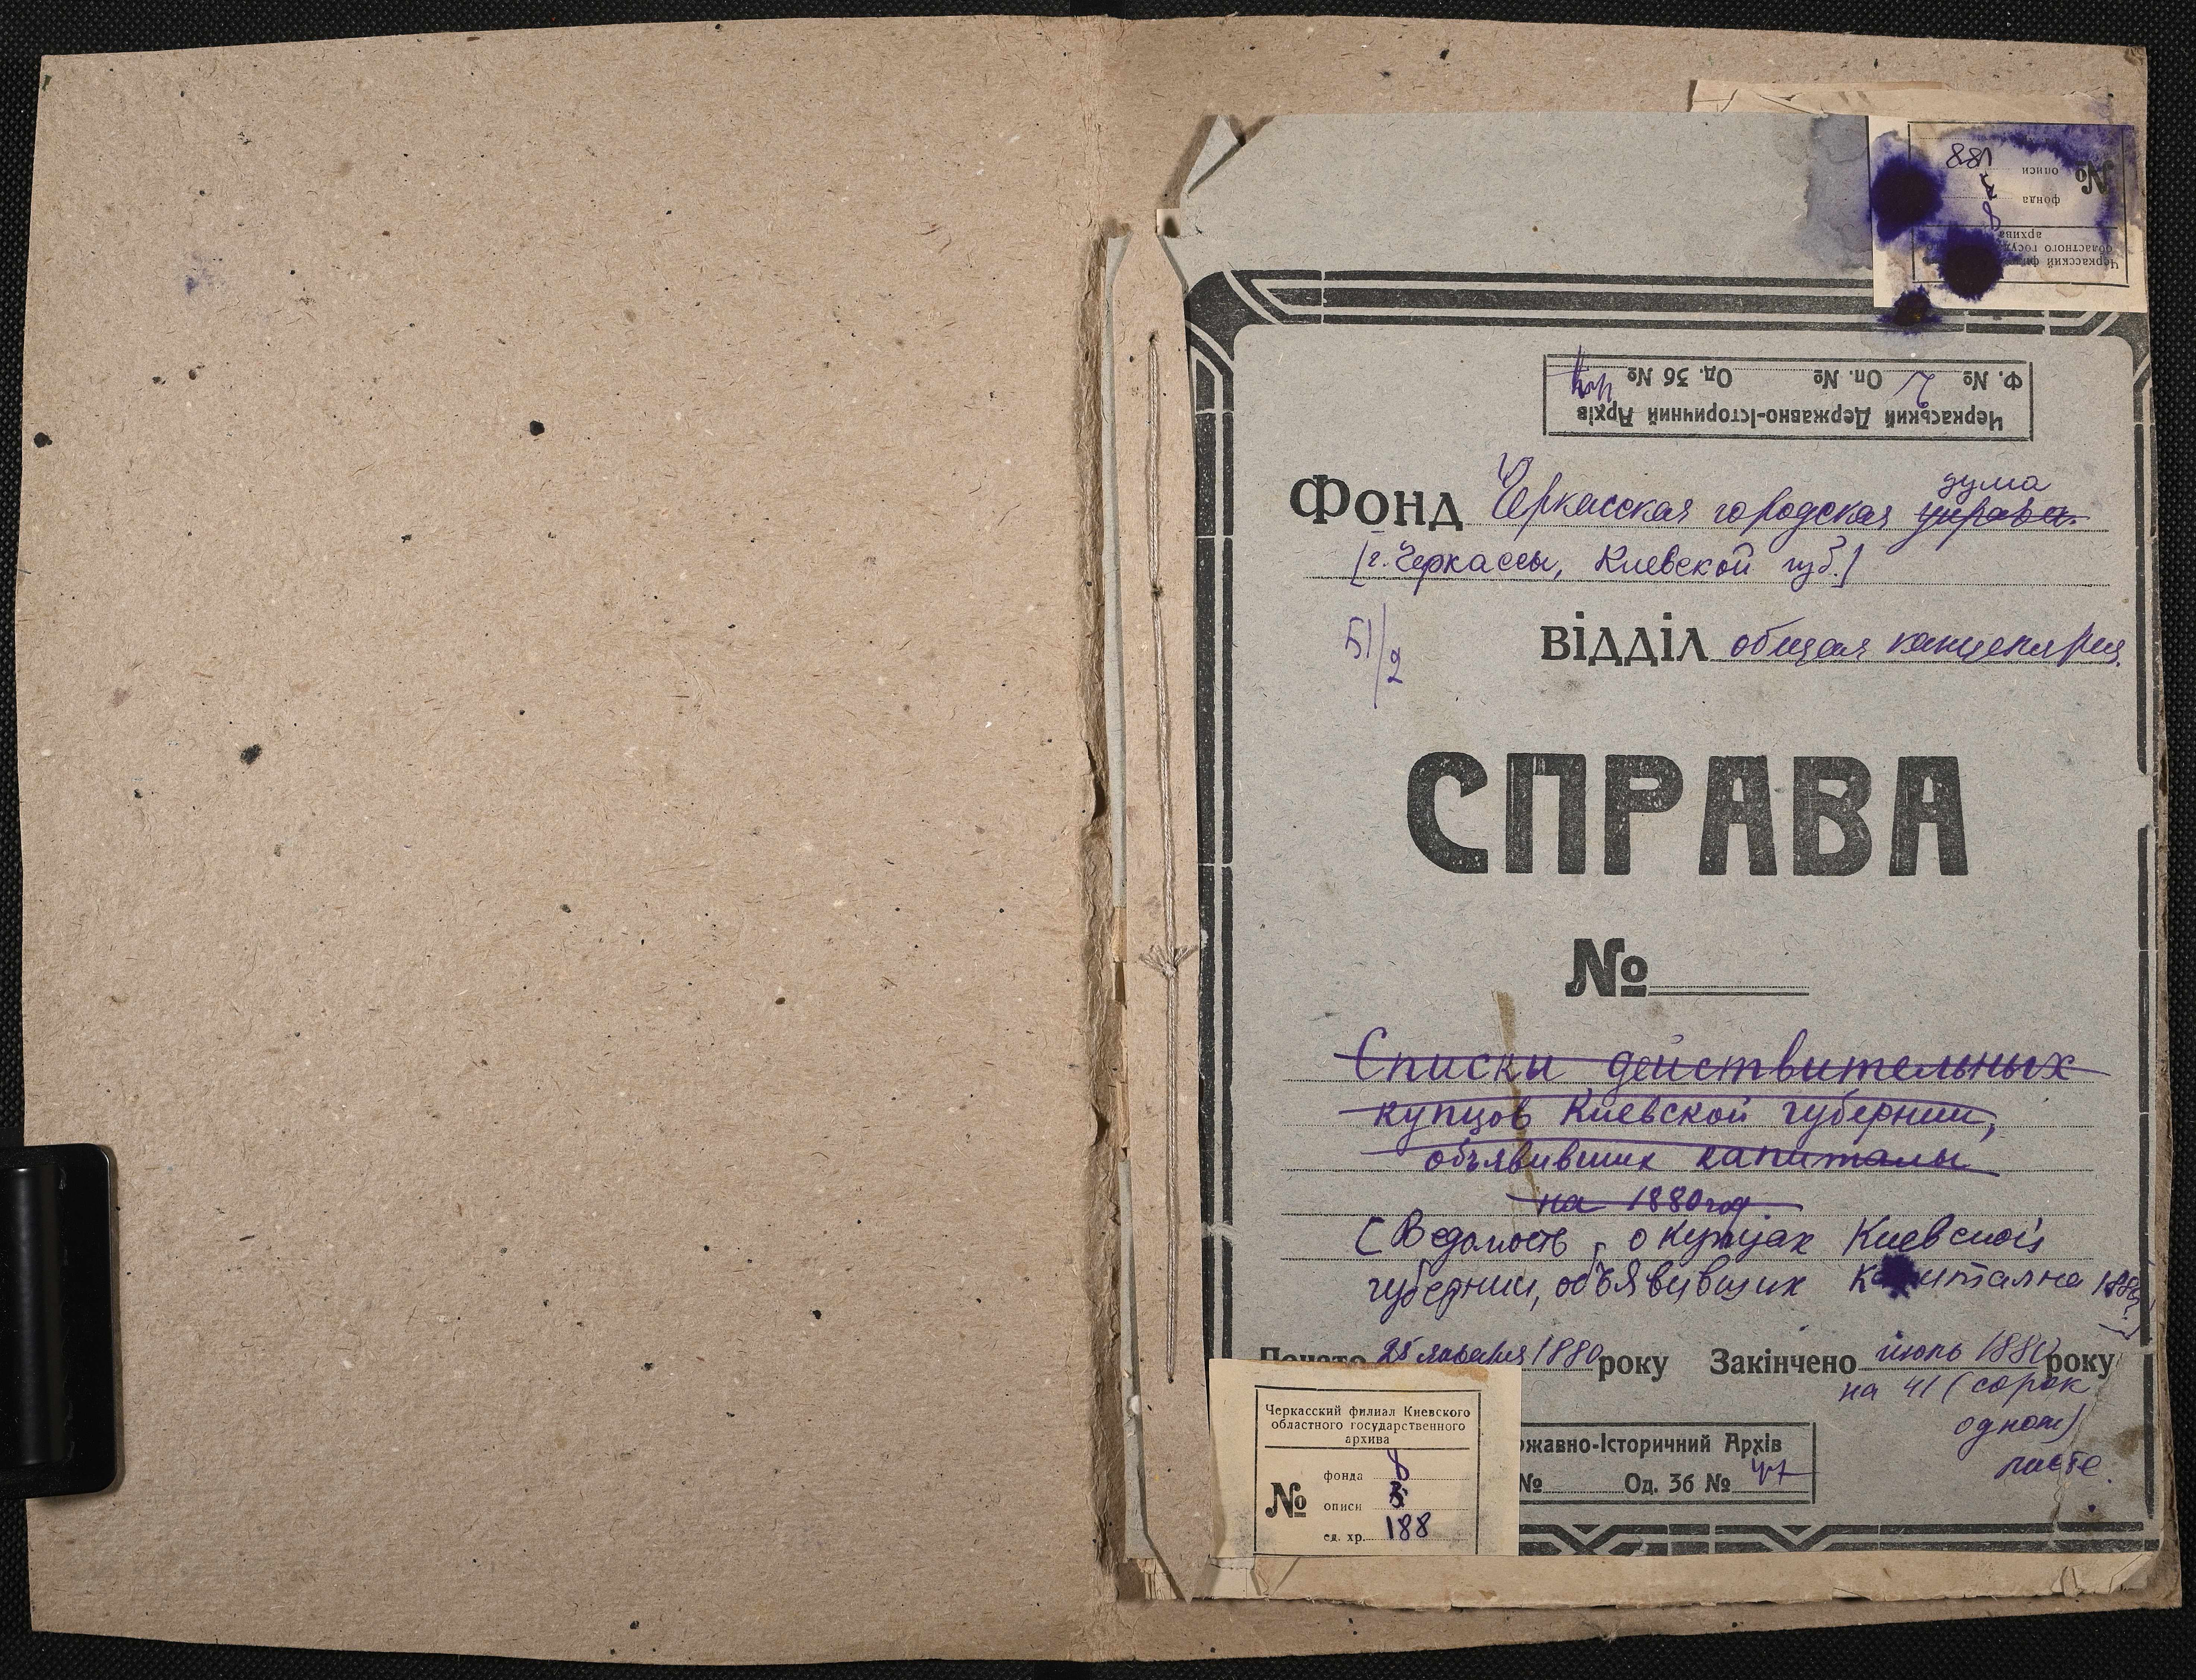 188
№ описи
фонда
8
архива
областного госуд
Черкасский фи
Ф. № Оп. № Од. Зб №
Черкаський Державно-Історичний Архів
дума
Фонд Черкасская городская управа.
[г. Черкассы, Киевской губ.]
51/2
відділ общая канцелярия.
СПРАВА
№
Списки действительных
купцов Киевской губернии,
объявивших капиталы
на 1880 год
[Ведомость о купцах Киевской
губернии, объявивших капитал на 1880
Почато 25 января 1880 року Закінчено июль 1880 року
на 41 (сорок
одном)
листе.
Черкасский филиал Киевского
областного государственного
архива
фонда 8
№ описи
ед. хр. 188
ржавно-Історичний Архів
№ Од. Зб № 47